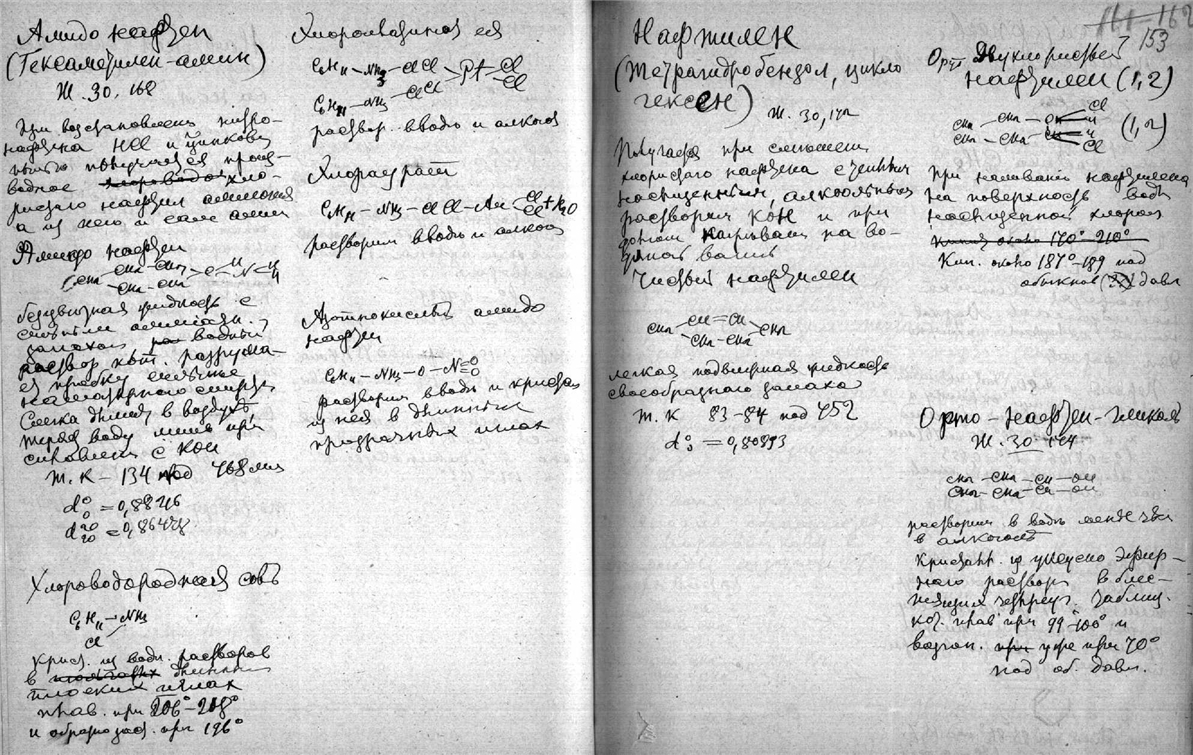 Амидо нафзен
(Гексаметилен-амин)
Ж. 30. 162
При возстановлении нитро-
нафзена HCl и цинковой
пылью получается произ-
водное хло-
ристаго нафзил аммония
а из него и сам амин
Амидо нафзен
CH2 CH2-CH2 C H N H H
CH2-CH2
безцветная жидкость с
запахом водный
раствор кот. разруша-
ет пробку
Слегка дымит в воздухе
теряя воду лишь при
с KOH
Т. К - 134 под 768 мм
d 0 0 = 0,88216
d 20 20 =
Хлороводородная соль
C6H11-NH3
Cl
Крист. из водн. растворов
в длинных
плоских иглах
плав. при 206°-208°
и образов. при 196°
Хлороплатиновая ея
C6H11-NH3-Cl Cl > Pt < Cl Cl
C6H11-NH3-Cl Cl
раствор. в воде и алкоголе
Хлораурат
C6H11-NH3-Cl Cl-Au < Cl Cl + H2O
растворим в воде и алкоголе
Азотнокислый амидо
нафзен
C6H11-NH3-O-N=O O
растворим в воде и кристал
из нея в длинных
прозрачных иглах
161-162
153
Нафтилен
(Тетрагидробензол, цикло
гексен)
Ж. 30,
Получается при
хлористаго нафзена с
насыщенным, алкогольным
раствором KOH и при
долгом нагревании на во-
дяной бане
Чистый нафзилен
CH2 CH=CH CH2
CH2-CH2
легкая подвижная жидкость
своеобразнаго запаха
Т. К 83-84 под 752
d 0 0 = 0,80893
Орто Двухлористый
нафзилен (1,2)
CH2 CH2-CH Cl H
CH2-CH2-CH H Cl
(1,2)
При наливании нафзилена
на поверхность воды
насыщенной хлором
Кип. около 187°-189 под
обыкнов. давл
Орто-нафзен-гликоль
Ж. 30
CH2-CH2-CH-OH
CH2-CH2-CH-OH
растворим в воде
в алкоголе
Кристал. из уксусно эфир-
наго раствора в блес-
тящих таблиц.
кот. плав при 99-100° и
возгон. уже при 70°
под об. давл.